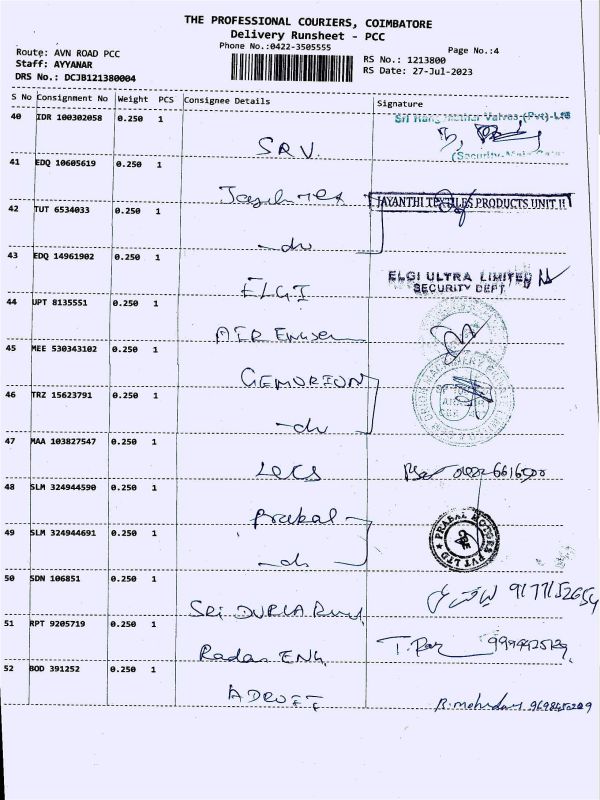 THE PROFESSIONAL COURIERS, COIMBATORE
Delivery Runsheet - PCC
Phone No.:0422-3505555
Page No.:4
Route: AVN ROAD PCC
Staff: AYYANAR
DRS No.: DCJB121380004
RS No.: 1213800
RS Date: 27-Jul-2023
S No Consignment No Weight PCS Consignee Details Signature
40 IDR 100302058 0.250 1 SRV
41 EDQ 10605619 0.250 1 JAYANTHI TEXTILES PRODUCTS UNIT II
42 TUT 6534033 0.250 1 -do-
43 EDQ 14961902 0.250 1 ELGI ELGI ULTRA LIMITED
SECURITY DEPT
44 UPT 8135551 0.250 1 AIR
45 MEE 530343102 0.250 1
46 TRZ 15623791 0.250 1 -do-
47 MAA 103827547 0.250 1 LECS
48 SLM 324944590 0.250 1 Prabal PRABAL MOTORS PVT LTD
49 SLM 324944691 0.250 1 -do-
50 SDN 106851 0.250 1 SRI DURGA
51 RPT 9205719 0.250 1 Radar ENG
52 BOD 391252 0.250 1